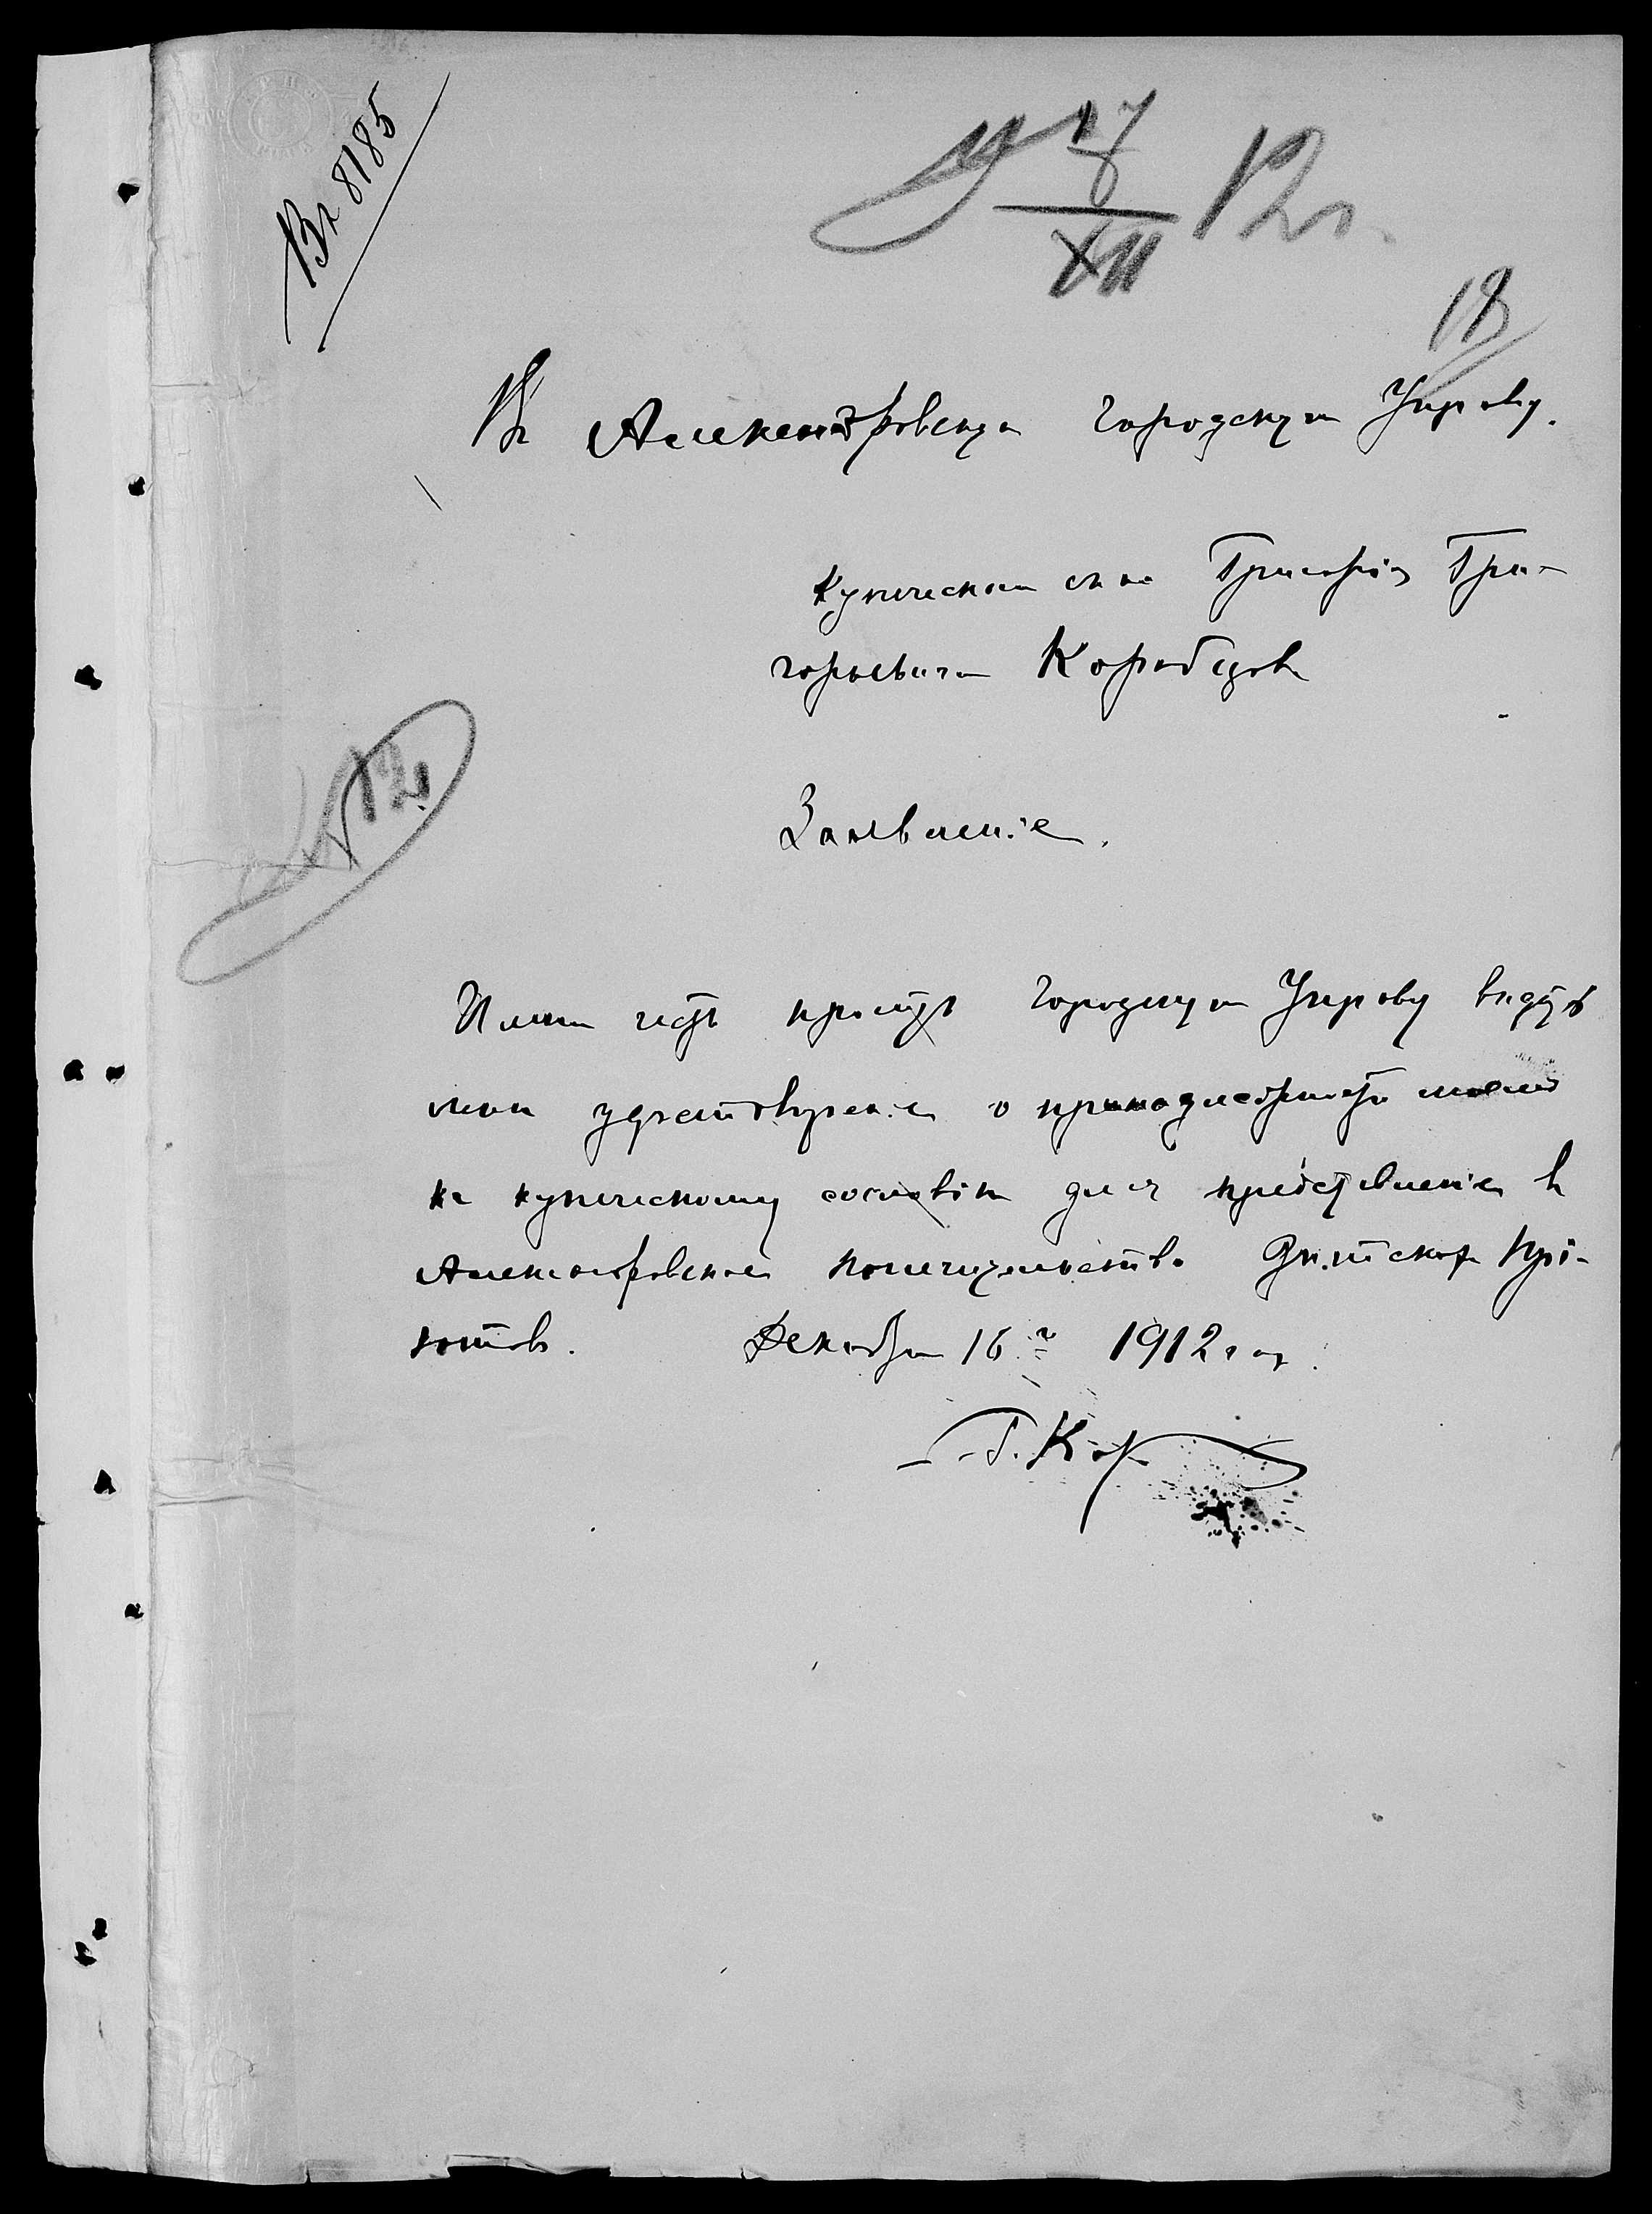 Вх 8185
17
XII 12 г.
18
Въ Александровскую Городскую Управу.
Купеческаго сына Григорія Гри-
горьевича Коробцова
Заявленіе.
Имѣю честь просить Городскую Управу выдать
мнѣ удостовѣреніе о принадлежности моей
къ купеческому сословію для представленія въ
Александровское попечительство Дѣтских Прі-
ютовъ. Декабря 16 г. 1912 года.
Г. Кор